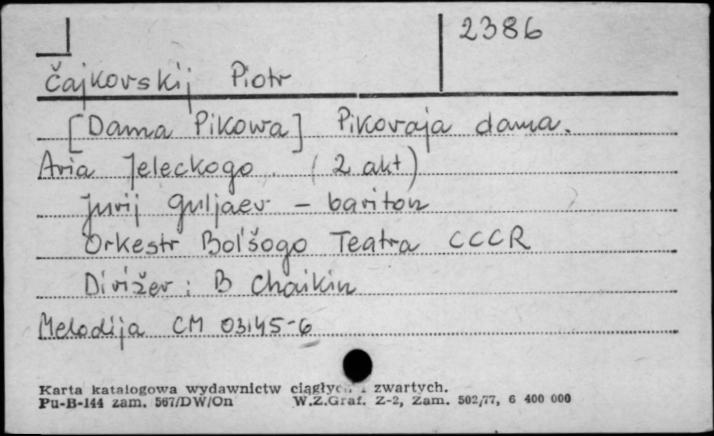 2386
Čajkovskij Piotr
[Dama Pikowa] Pikovaja dama.
Aria Jeleckogo. (2 akt)
Jurij Guljaev - bariton
Orkestr Bol'šogo Teatra CCCR
Dirižer: B Chaikin
Melodija CM 03145-6
Karta katalogowa wydawnictw ciągłych i zwartych.
Pu-B-144 zam. 567/DW/On W.Z.Graf. Z-2, Zam. 502/77, 6 400 000